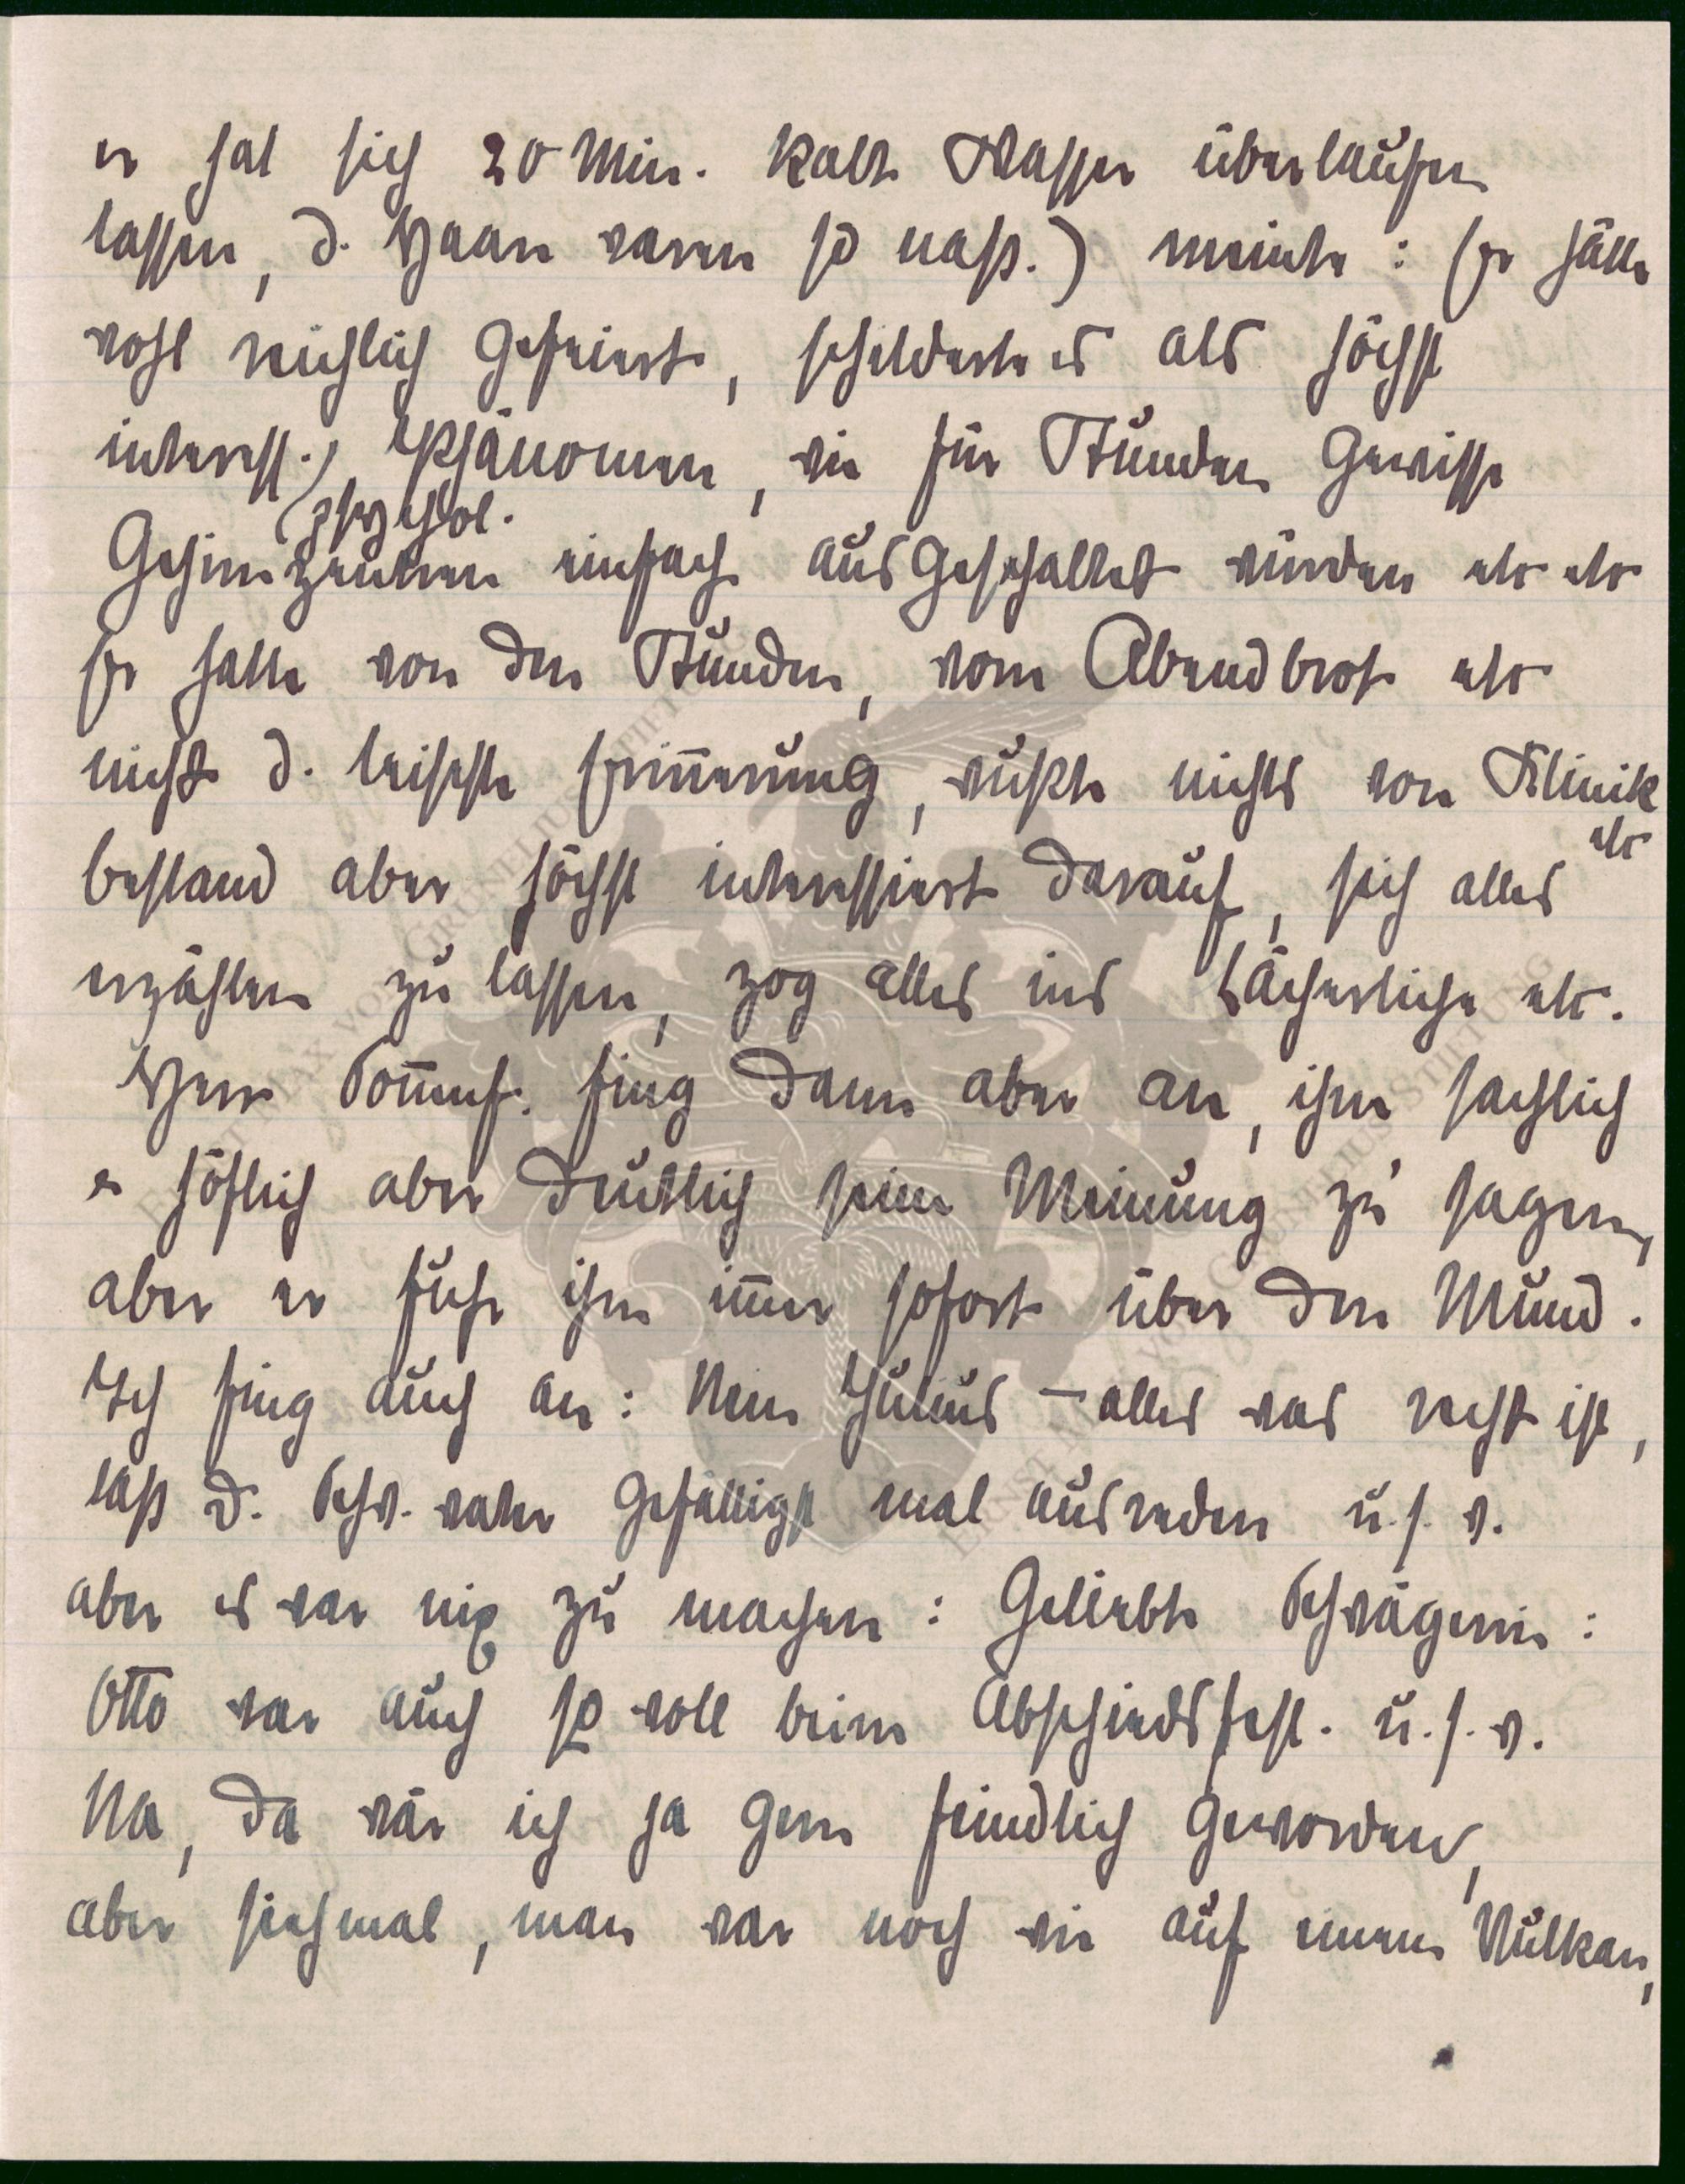 er hat sich 20 Min. kalt Wasser überlaufen
lassen, d. Haare waren so naß.) meinte: Er hätte
wohl reichlich gefeiert, schilderte es als höchst
interess., Phänomen, wie für Stunden gewisse
(psychol.
Gehirnzentren einfach ausgeschaltet würden etc etc
Er hatte von den Stunden, vom Abendbrot etc
nicht d. leiseste Erinnerung, wußte nichts von Klinik
etc
bestand aber höchst interessiert darauf, sich alles
erzählen zu lassen, zog alles ins Lächerliche etc.
Herr Sommf. fing dann aber an, ihm sachlich
u höflich aber deutlich seine Meinung zu sagen,
aber er fuhr ihm immer sofort über den Mund.
Ich fing auch an: Nun Julius – alles was recht ist,
laß d. Schw. vater gefälligst mal ausreden u. s. w.
aber es war nix zu machen: Geliebte Schwägerin:
Otto war auch so voll beim Abschiedsfest. u. s. w.
Na, da wär ich ja gern feindlich geworden,
aber siehmal, man war noch wie auf einem Vulkan,
ERNST MAX VON GROTHELIUS STIFTUNG